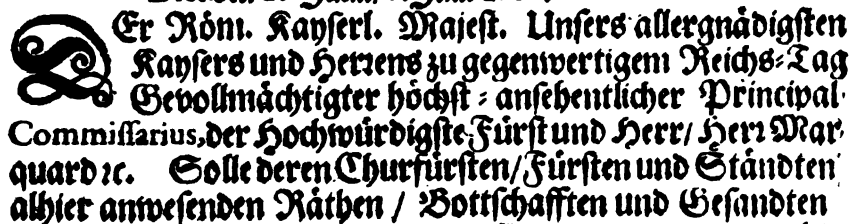 DEr Röm. Kayserl. Majest. Unsers allergnädigsten
Kaysers und Herrens zu gegenwertigem Reichs-Tag
Gevollmächtigter höchst-ansehentlicher Principal-
Commissarius, der Hochwürdigste Fürst und Herr/ Herr Mar-
quard ꝛc. Solle deren Churfürsten/ Fürsten und Ständten
alhier anwesenden Räthen / Bottschafften und Gesandten